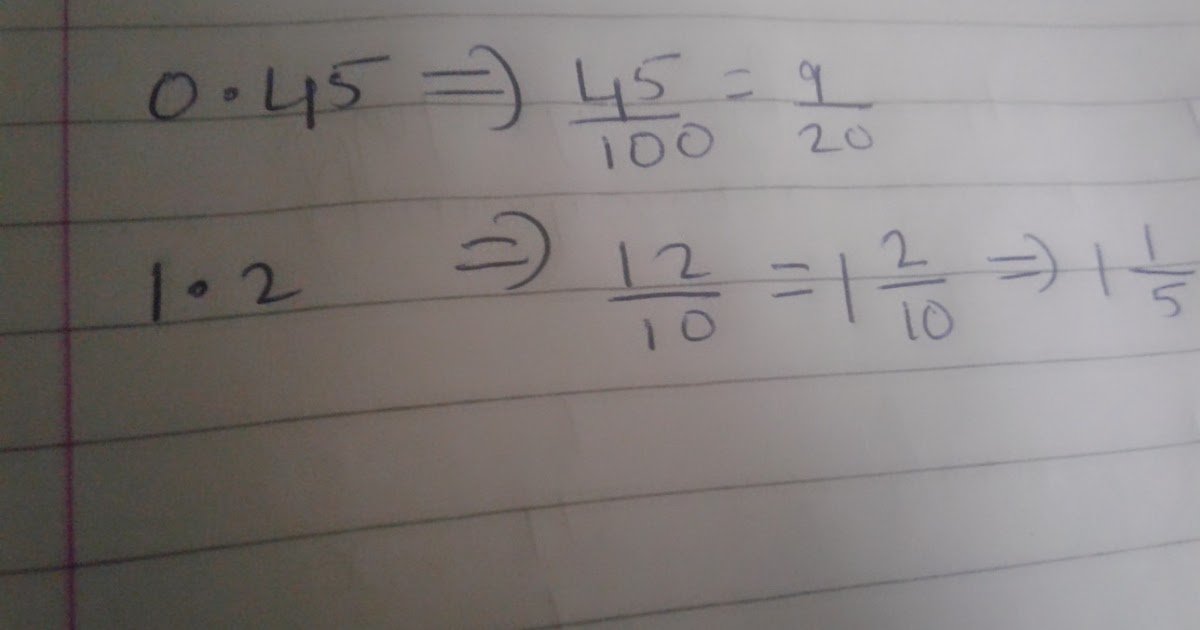 0.45 ⇒ 45/100 = 9/20
1.2 ⇒ 12/10 = 1 2/10 ⇒ 1 1/5